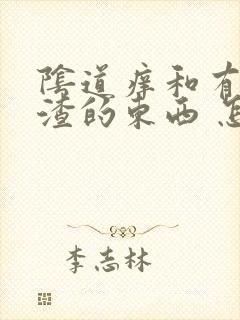 陰道痒和有
渣的东西 怎
李志林